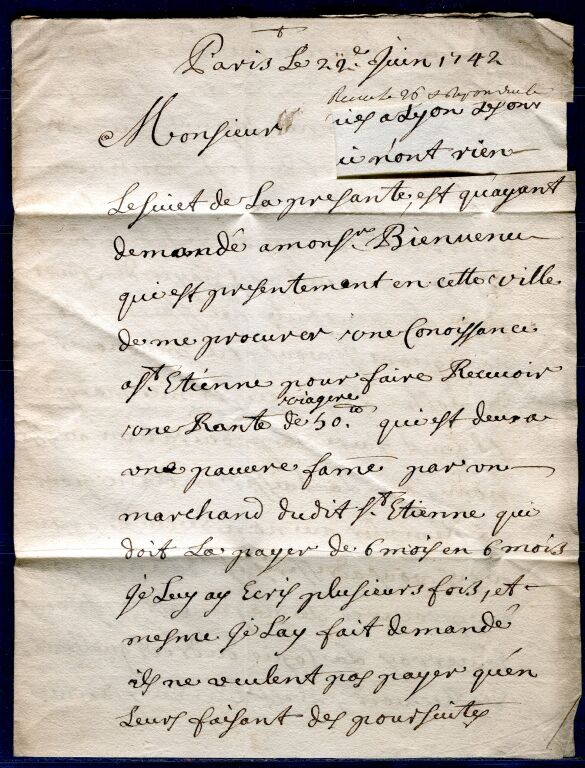 Paris le 22e. Juin 1742
Receu le 26 et repondu le
Monsieur
a Lyon
n'ont rien
Le sujet de La presante, est qu'ayant
demandé a monsr. Bienuenu
qui est presentement en cette ville
de me procurer une Conoissance
a st. Etienne pour faire Receuoir
viagere
une Rante de 50.tt qui est deue a
une pauure fame par un
marchand dudit st. Etienne qui
doit La payer de 6 mois en 6 mois
Je Luy ay Ecris plusieurs fois, et
mesme Je L'ay fait demandé
ils ne veulent pas payer qu'en
Leurs faisant des poursuites